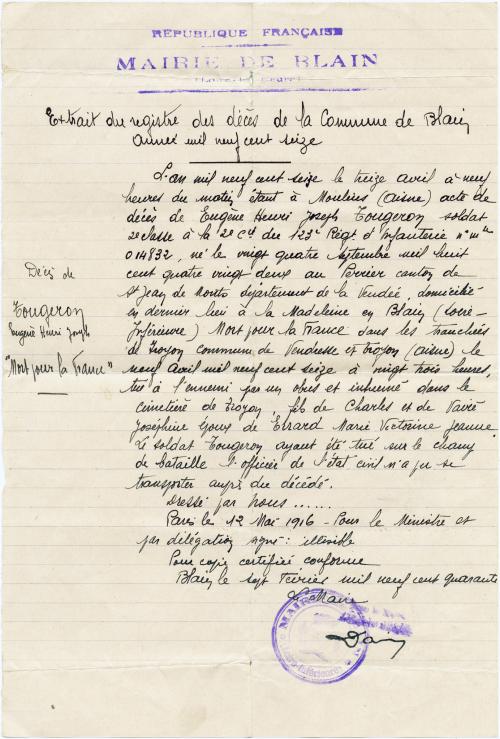 RÉPUBLIQUE FRANÇAISE
MAIRIE DE BLAIN
Extrait du registre des décès de la Commune de Blain
Année mil neuf cent seize
L'an mil neuf cent seize le treize avril à neuf
heures du matin, étant à Moulins (Aisne) acte de
décès de Eugène Henri Joseph Tougeron soldat
2e classe à la 2e Cie du 123e Régt. d'Infanterie n° mle
014832, né le vingt quatre septembre mil huit
cent quatre vingt deux au Perrier canton de
St Jean de Monts département de la Vendée, domicilié
en dernier lieu à la Madeleine en Blain (Loire-
Inférieure) Mort pour la France dans les tranchées
de Troyon commune de Vendresse et Troyon (Aisne) le
neuf Avril mil neuf cent seize à vingt trois heures,
tué à l'ennemi par un obus et inhumé dans le
cimetière de Troyon fils de Charles et de Vairé
Joséphine époux de Erard Marie Victorine Jeanne
Le soldat Tougeron ayant été tué sur le champ
de bataille l'officier de l'état civil n'a pu se
transporter auprès du décédé.
Dressé par nous ......
Paris le 12 Mai 1916 - Pour le Ministre et
par délégation signé : illisible
Pour copie certifiée conforme
Blain le sept Février mil neuf cent quarante
Le Maire
Décès de
Tougeron
Eugène Henri Joseph
"Mort pour la France"
MAIRIE